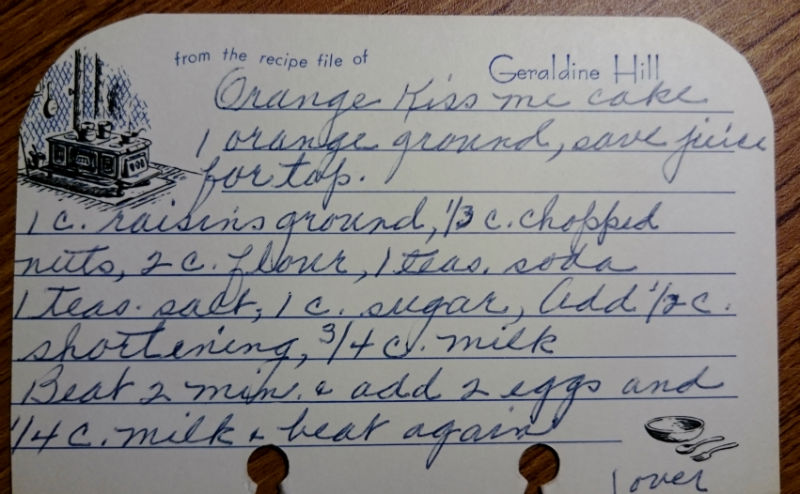 from the recipe file of Geraldine Hill
Orange Kiss me cake
1 orange ground, save juice
for top.
1 c. raisins ground, 1/3 c. chopped
nuts, 2 c. flour, 1 teas. soda
1 teas. salt, 1 c. sugar, Add 1/2 c.
shortening, 3/4 c. milk
Beat 2 min. & add 2 eggs and
1/4 c. milk & beat again
over